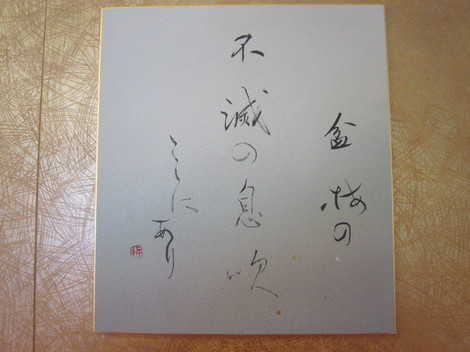 盆梅の
不滅の息吹
ここにあり